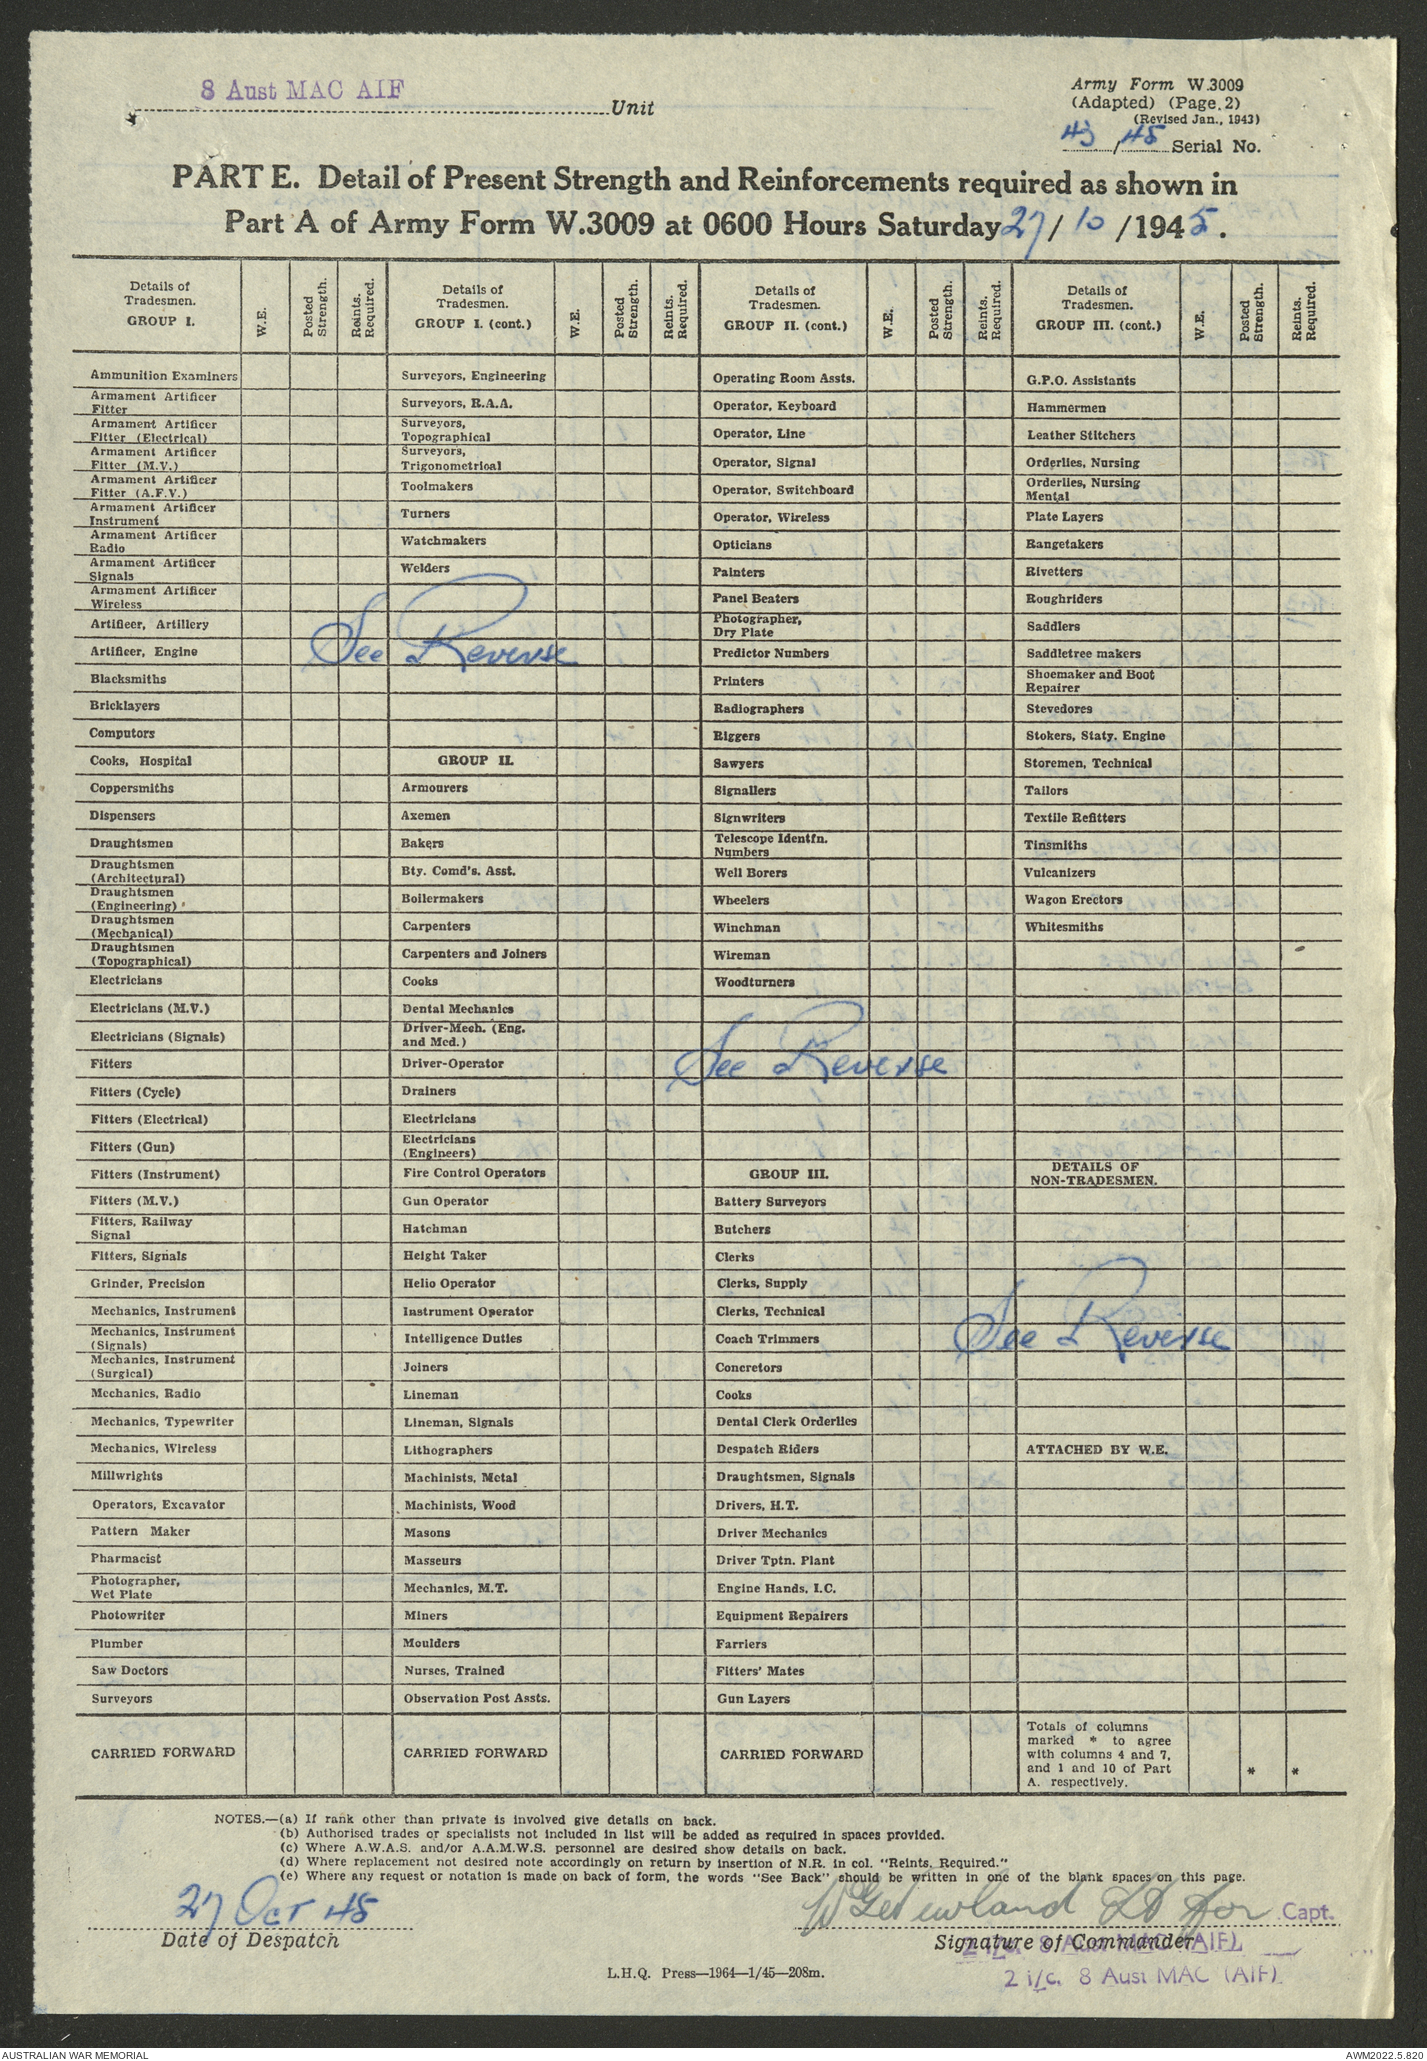 8 Aust MAC AIF
Unit
Army Form W.3009
(Adapted) (Page 2)
(Revised Jan., 1943)
43/45 Serial No.
PART E. Detail of Present Strength and Reinforcements required as shown in
Part A of Army Form W.3009 at 0600 Hours Saturday 27/10/1945.
Details of Tradesmen. GROUP I.
W.E.
Posted Strength.
Reints. Required.
Ammunition Examiners
Armament Artificer
Fitter
Armament Artificer
Fitter (Electrical)
Armament Artificer
Fitter (M.V.)
Armament Artificer
Fitter (A.F.V.)
Armament Artificer
Instrument
Armament Artificer
Radio
Armament Artificer
Signals
Armament Artificer
Wireless
Artificer, Artillery
Artificer, Engine
Blacksmiths
Bricklayers
Computors
Cooks, Hospital
Coppersmiths
Dispensers
Draughtsmen
Draughtsmen
(Architectural)
Draughtsmen
(Engineering)
Draughtsmen
(Mechanical)
Draughtsmen
(Topographical)
Electricians
Electricians (M.V.)
Electricians (Signals)
Fitters
Fitters (Cycle)
Fitters (Electrical)
Fitters (Gun)
Fitters (Instrument)
Fitters (M.V.)
Fitters, Railway
Signal
Fitters, Signals
Grinder, Precision
Mechanics, Instrument
Mechanics, Instrument
(Signals)
Mechanics, Instrument
(Surgical)
Mechanics, Radio
Mechanics, Typewriter
Mechanics, Wireless
Millwrights
Operators, Excavator
Pattern Maker
Pharmacist
Photographer,
Wet Plate
Photowriter
Plumber
Saw Doctors
Surveyors
CARRIED FORWARD
Details of Tradesmen. GROUP I. (cont.)
W.E.
Posted Strength.
Reints. Required.
Surveyors, Engineering
Surveyors, R.A.A.
Surveyors,
Topographical
Surveyors,
Trigonometrical
Toolmakers
Turners
Watchmakers
Welders
See Reverse
GROUP II.
Armourers
Axemen
Bakers
Bty. Comd's. Asst.
Boilermakers
Carpenters
Carpenters and Joiners
Cooks
Dental Mechanics
Driver-Mech. (Eng.
and Med.)
Driver-Operator
Drainers
Electricians
Electricians
(Engineers)
Fire Control Operators
Gun Operator
Hatchman
Height Taker
Helio Operator
Instrument Operator
Intelligence Duties
Joiners
Lineman
Lineman, Signals
Lithographers
Machinists, Metal
Machinists, Wood
Masons
Masseurs
Mechanics, M.T.
Miners
Moulders
Nurses, Trained
Observation Post Assts.
CARRIED FORWARD
Details of Tradesmen. GROUP II. (cont.)
W.E.
Posted Strength.
Reints. Required.
Operating Room Assts.
Operator, Keyboard
Operator, Line
Operator, Signal
Operator, Switchboard
Operator, Wireless
Opticians
Painters
Panel Beaters
Photographer,
Dry Plate
Predictor Numbers
Printers
Radiographers
Riggers
Sawyers
Signallers
Signwriters
Telescope Identfn.
Numbers
Well Borers
Wheelers
Winchman
Wireman
Woodturners
See Reverse
GROUP III.
Battery Surveyors
Butchers
Clerks
Clerks, Supply
Clerks, Technical
Coach Trimmers
Concretors
Cooks
Dental Clerk Orderlies
Despatch Riders
Draughtsmen, Signals
Drivers, H.T.
Driver Mechanics
Driver Tptn. Plant
Engine Hands, I.C.
Equipment Repairers
Farriers
Fitters' Mates
Gun Layers
CARRIED FORWARD
Details of Tradesmen. GROUP III. (cont.)
W.E.
Posted Strength.
Reints. Required.
G.P.O. Assistants
Hammermen
Leather Stitchers
Orderlies, Nursing
Orderlies, Nursing
Mental
Plate Layers
Rangetakers
Rivetters
Roughriders
Saddlers
Saddletree makers
Shoemaker and Boot
Repairer
Stevedores
Stokers, Staty. Engine
Storemen, Technical
Tailors
Textile Refitters
Tinsmiths
Vulcanizers
Wagon Erectors
Whitesmiths
DETAILS OF
NON-TRADESMEN.
See Reverse
ATTACHED BY W.E.
Totals of columns
marked * to agree
with columns 4 and 7,
and 1 and 10 of Part
A. respectively.
* *
NOTES.—(a) If rank other than private is involved give details on back.
(b) Authorised trades or specialists not included in list will be added as required in spaces provided.
(c) Where A.W.A.S. and/or A.A.M.W.S. personnel are desired show details on back.
(d) Where replacement not desired note accordingly on return by insertion of N.R. in col. "Reints. Required."
(e) Where any request or notation is made on back of form, the words "See Back" should be written in one of the blank spaces on this page.
27 Oct 45
Date of Despatch
Lt for Capt.
Signature of Commander
2 i/c. 8 Aust MAC (AIF)
2 i/c. 8 Aust MAC (AIF)
L.H.Q. Press—1964—1/45—208m.
AUSTRALIAN WAR MEMORIAL
AWM2022.5.820